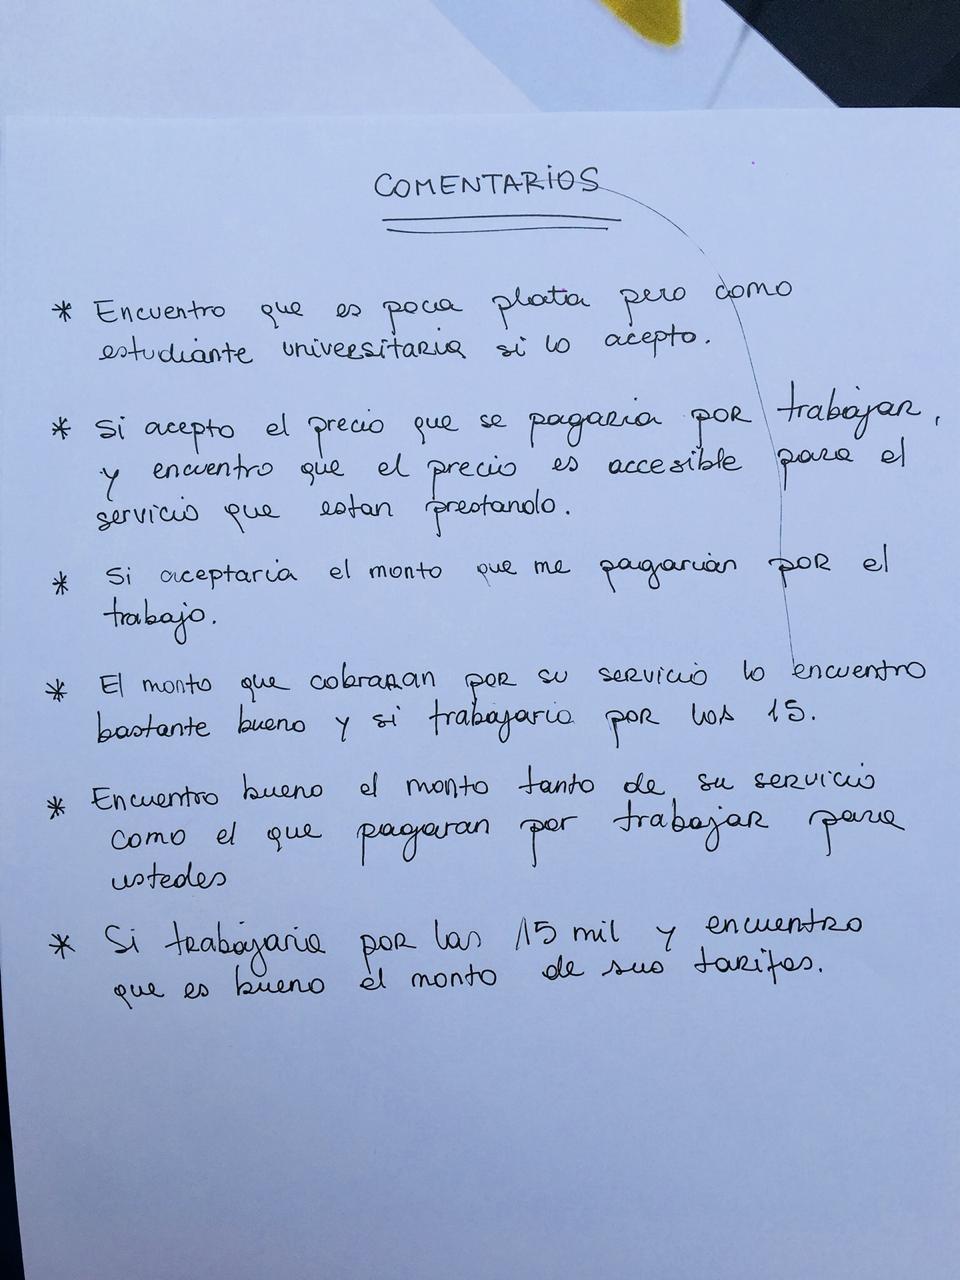 COMENTARIOS
* Encuentro que es poca plata pero como
estudiante universitaria si lo acepto.
* Si acepto el precio que se pagaria por trabajar,
y encuentro que el precio es accesible para el
servicio que estan prestando.
* Si aceptaria el monto que me pagarian por el
trabajo.
* El monto que cobraran por su servicio lo encuentro
bastante bueno y si trabajaria por los 15.
* Encuentro bueno el monto tanto de su servicio
como el que pagaran por trabajar para
ustedes
* Si trabajaria por las 15 mil y encuentro
que es bueno el monto de sus tarifas.